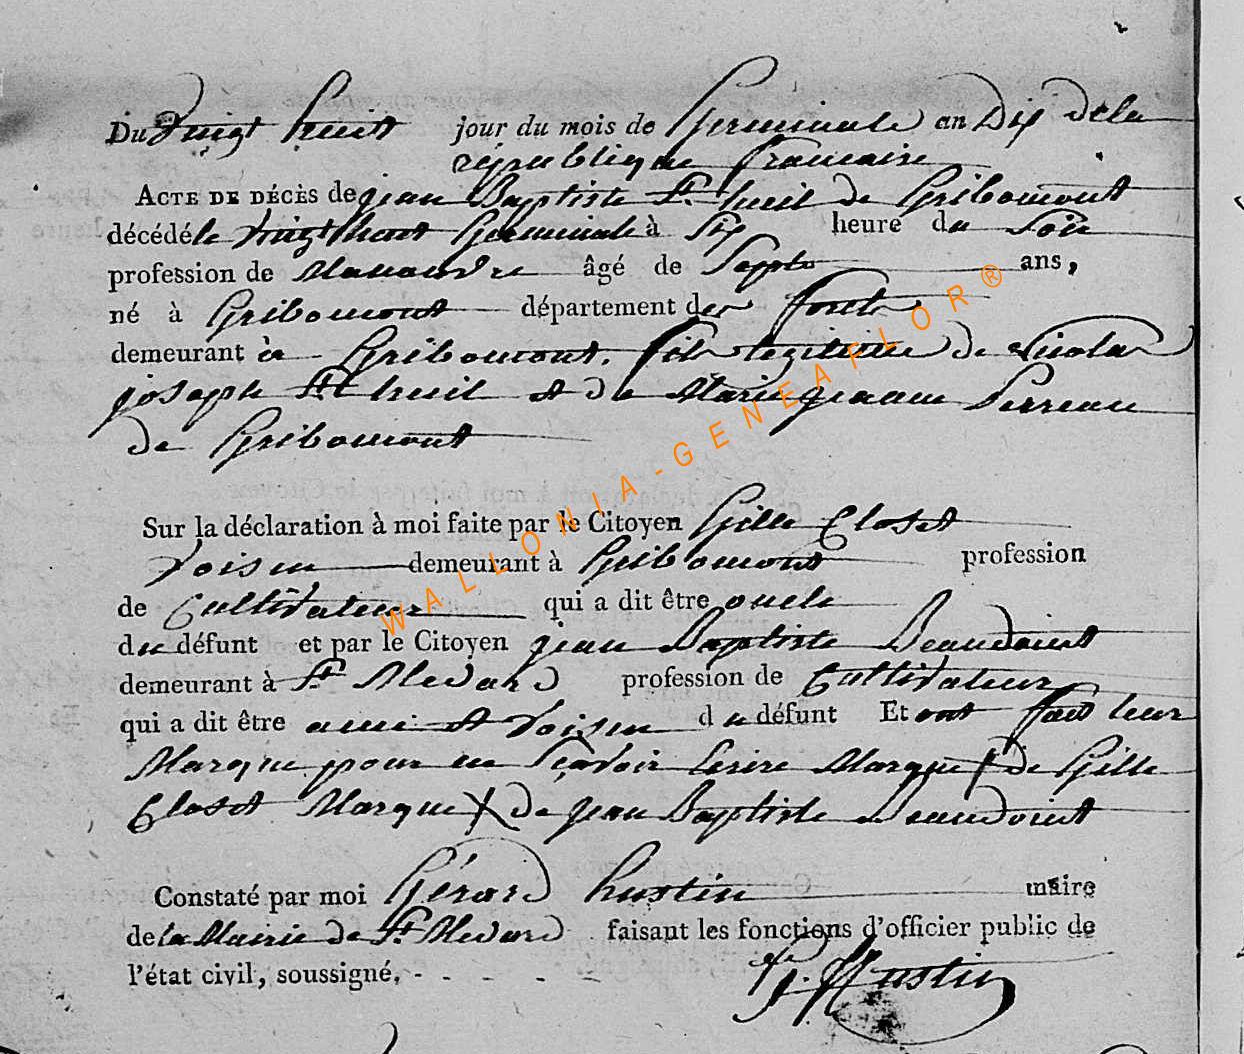 Du vingt huit jour du mois de Germinale an Dix dela
république francaise
ACTE DE DÉCÈS de jean Baptiste St. huil de Gribomont
décédé le vingt huit Germinale à Six heure du Soir
profession de âgé de Septe ans,
né à Gribomont département des forets
demeurant à Gribomont. fils legitime de Nicolas
joseph St. huil et de Marie jeanne Perreau
de Gribomont
Sur la déclaration à moi faite par le Citoyen Gille Closet
voisin demeurant à Gribomont profession
de Cultivateur qui a dit être oncle
du défunt et par le Citoyen jean Baptiste Beaudoint
demeurant à St. Medard profession de Cultivateur
qui a dit être ami et voisin du défunt Et ont fait leur
Marque pour ne Scavoir Ecrire Marque de Gille
Closet Marque X de jean Baptiste Beaudoint
Constaté par moi Gérard hustin maire
de la Mairie de St. Medard faisant les fonctions d'officier public de
l'état civil, soussigné. - - - - -
G. Hustin
WALLONIA-GENEAFLOR®